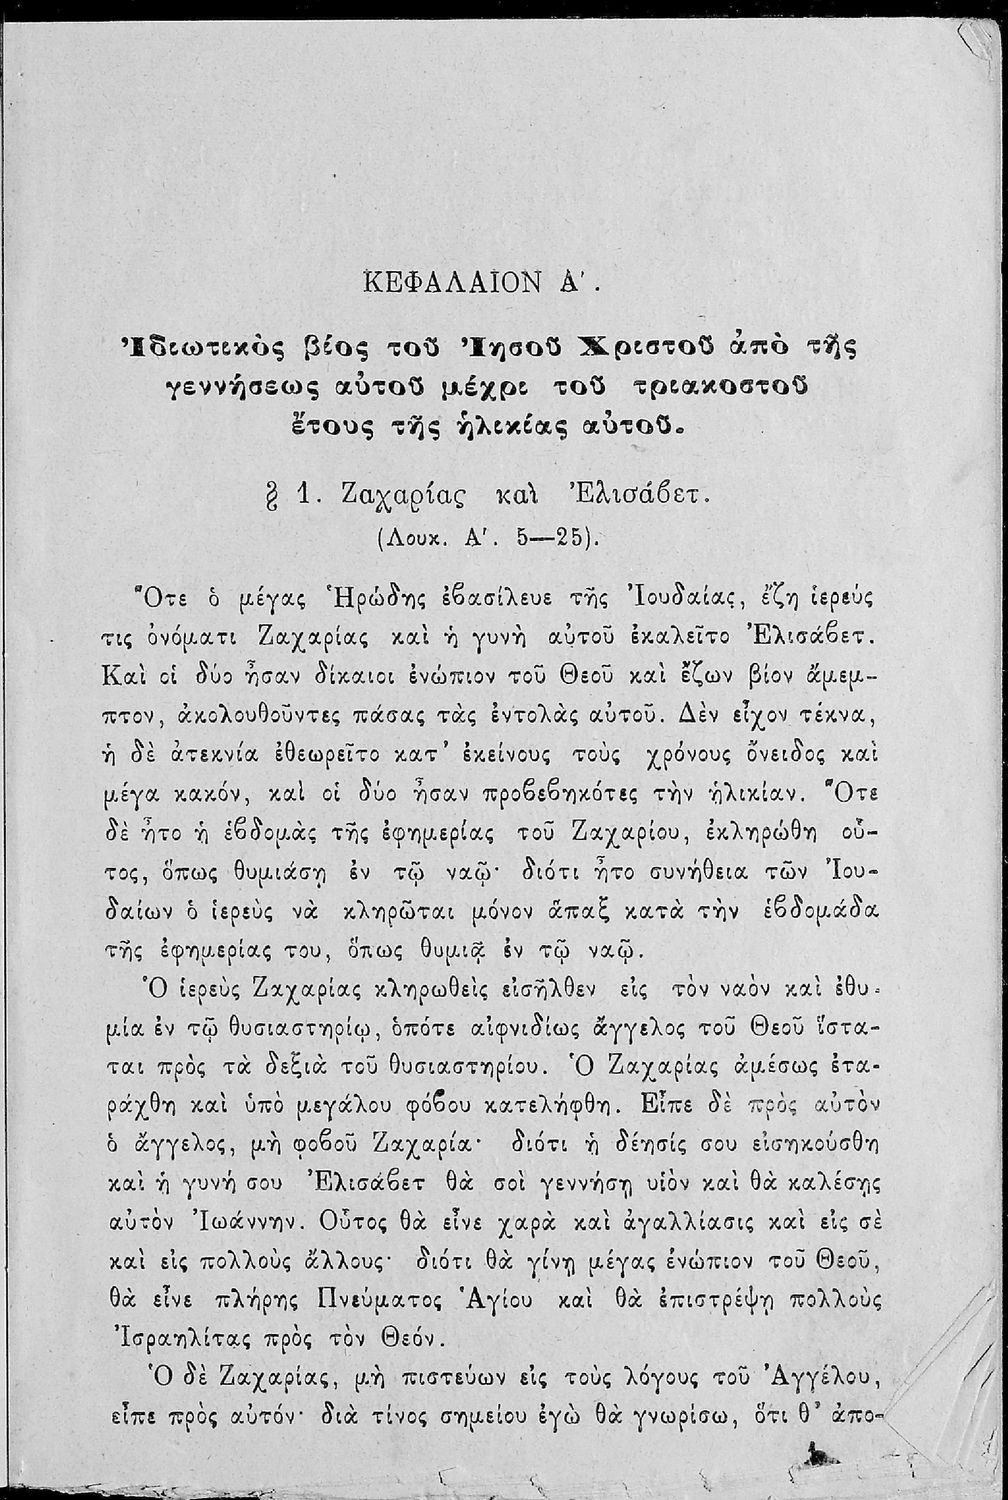 ΚΕΦΑΛΑΙΟΝ Α'.
Ἰδιωτικὸς βίος τοῦ Ἰησοῦ Χριστοῦ ἀπὸ τῆς
γεννήσεως αὐτοῦ μέχρι τοῦ τριακοστοῦ
ἔτους τῆς ἡλικίας αὐτοῦ.
§ 1. Ζαχαρίας καὶ Ἐλισάβετ.
(Λουκ. Α'. 5—25).
Ὅτε ὁ μέγας Ἡρώδης ἐβασίλευε τῆς Ἰουδαίας, ἔζη ἱερεύς
τις ὀνόματι Ζαχαρίας καὶ ἡ γυνὴ αὐτοῦ ἐκαλεῖτο Ἐλισάβετ.
Καὶ οἱ δύο ἦσαν δίκαιοι ἐνώπιον τοῦ Θεοῦ καὶ ἔζων βίον ἄμεμ-
πτον, ἀκολουθοῦντες πάσας τὰς ἐντολὰς αὐτοῦ. Δὲν εἶχον τέκνα,
ἡ δὲ ἀτεκνία ἐθεωρεῖτο κατ' ἐκείνους τοὺς χρόνους ὄνειδος καὶ
μέγα κακόν, καὶ οἱ δύο ἦσαν προβεβηκότες τὴν ἡλικίαν. Ὅτε
δὲ ἦτο ἡ ἑβδομὰς τῆς ἐφημερίας τοῦ Ζαχαρίου, ἐκληρώθη οὗ-
τος, ὅπως θυμιάσῃ ἐν τῷ ναῷ· διότι ἦτο συνήθεια τῶν Ἰου-
δαίων ὁ ἱερεὺς νὰ κληρῶται μόνον ἅπαξ κατὰ τὴν ἑβδομάδα
τῆς ἐφημερίας του, ὅπως θυμιᾷ ἐν τῷ ναῷ.
Ὁ ἱερεὺς Ζαχαρίας κληρωθεὶς εἰσῆλθεν εἰς τὸν ναὸν καὶ ἐθυ-
μία ἐν τῷ θυσιαστηρίῳ, ὁπότε αἰφνιδίως ἄγγελος τοῦ Θεοῦ ἵστα-
ται πρὸς τὰ δεξιὰ τοῦ θυσιαστηρίου. Ὁ Ζαχαρίας ἀμέσως ἐτα-
ράχθη καὶ ὑπὸ μεγάλου φόβου κατελήφθη. Εἶπε δὲ πρὸς αὐτὸν
ὁ ἄγγελος, μὴ φοβοῦ Ζαχαρία· διότι ἡ δέησίς σου εἰσηκούσθη
καὶ ἡ γυνή σου Ἐλισάβετ θὰ σοὶ γεννήσῃ υἱὸν καὶ θὰ καλέσῃς
αὐτὸν Ἰωάννην. Οὗτος θὰ εἶνε χαρὰ καὶ ἀγαλλίασις καὶ εἰς σὲ
καὶ εἰς πολλοὺς ἄλλους· διότι θὰ γίνῃ μέγας ἐνώπιον τοῦ Θεοῦ,
θὰ εἶνε πλήρης Πνεύματος Ἁγίου καὶ θὰ ἐπιστρέψῃ πολλοὺς
Ἰσραηλίτας πρὸς τὸν Θεόν.
Ὁ δὲ Ζαχαρίας, μὴ πιστεύων εἰς τοὺς λόγους τοῦ Ἀγγέλου,
εἶπε πρὸς αὐτόν· διὰ τίνος σημείου ἐγὼ θὰ γνωρίσω, ὅτι θ' ἀπο-